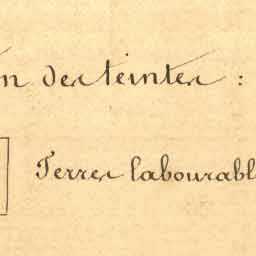 n des teintes :
Terres labourabl